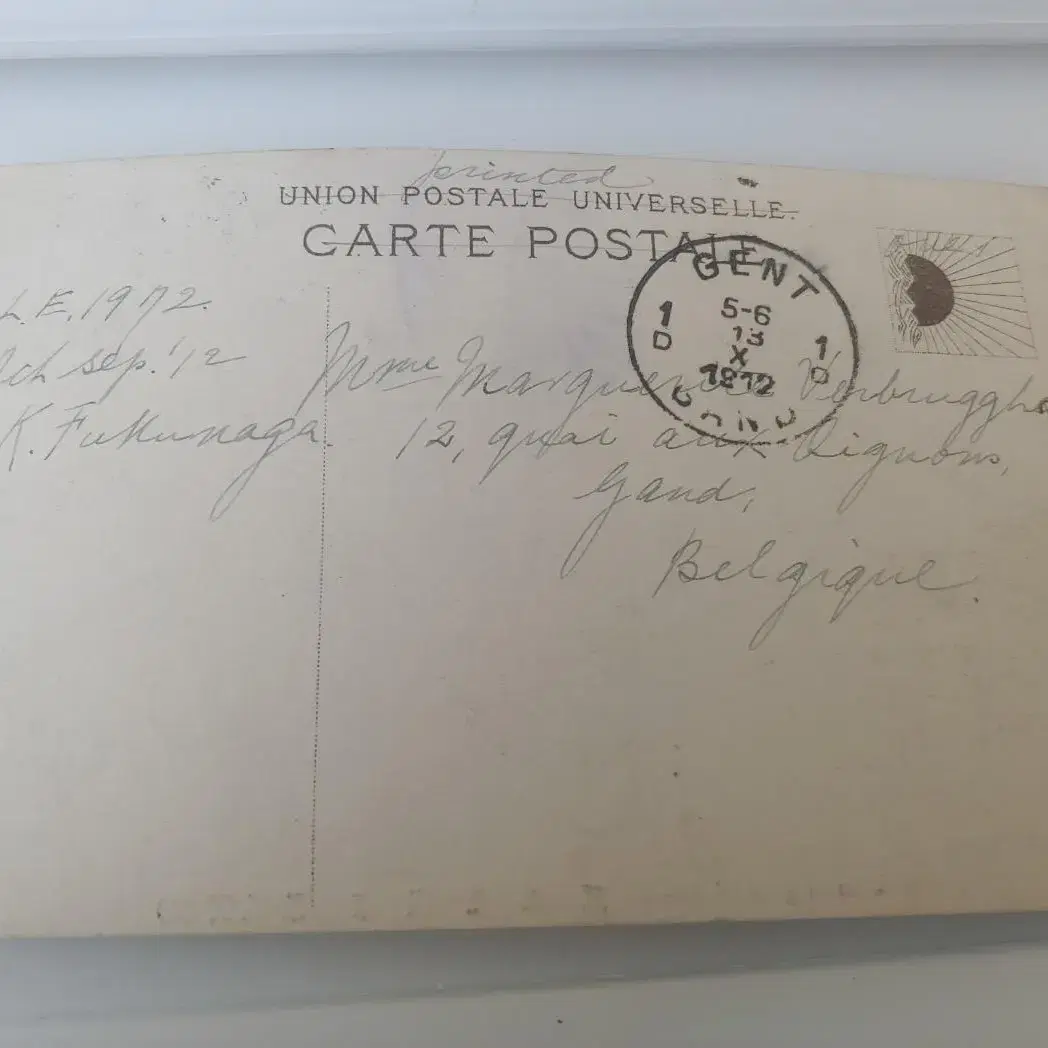 printed
UNION POSTALE UNIVERSELLE.
CARTE POSTALE
L.E. 1972.
sep. '12
K. Fukunaga.
GENT
5-6
13
X
1912
1
D
1
D
GAND
Mme Marguerite Verbrugghe
12, quai aux Oignons,
Gand,
Belgique.